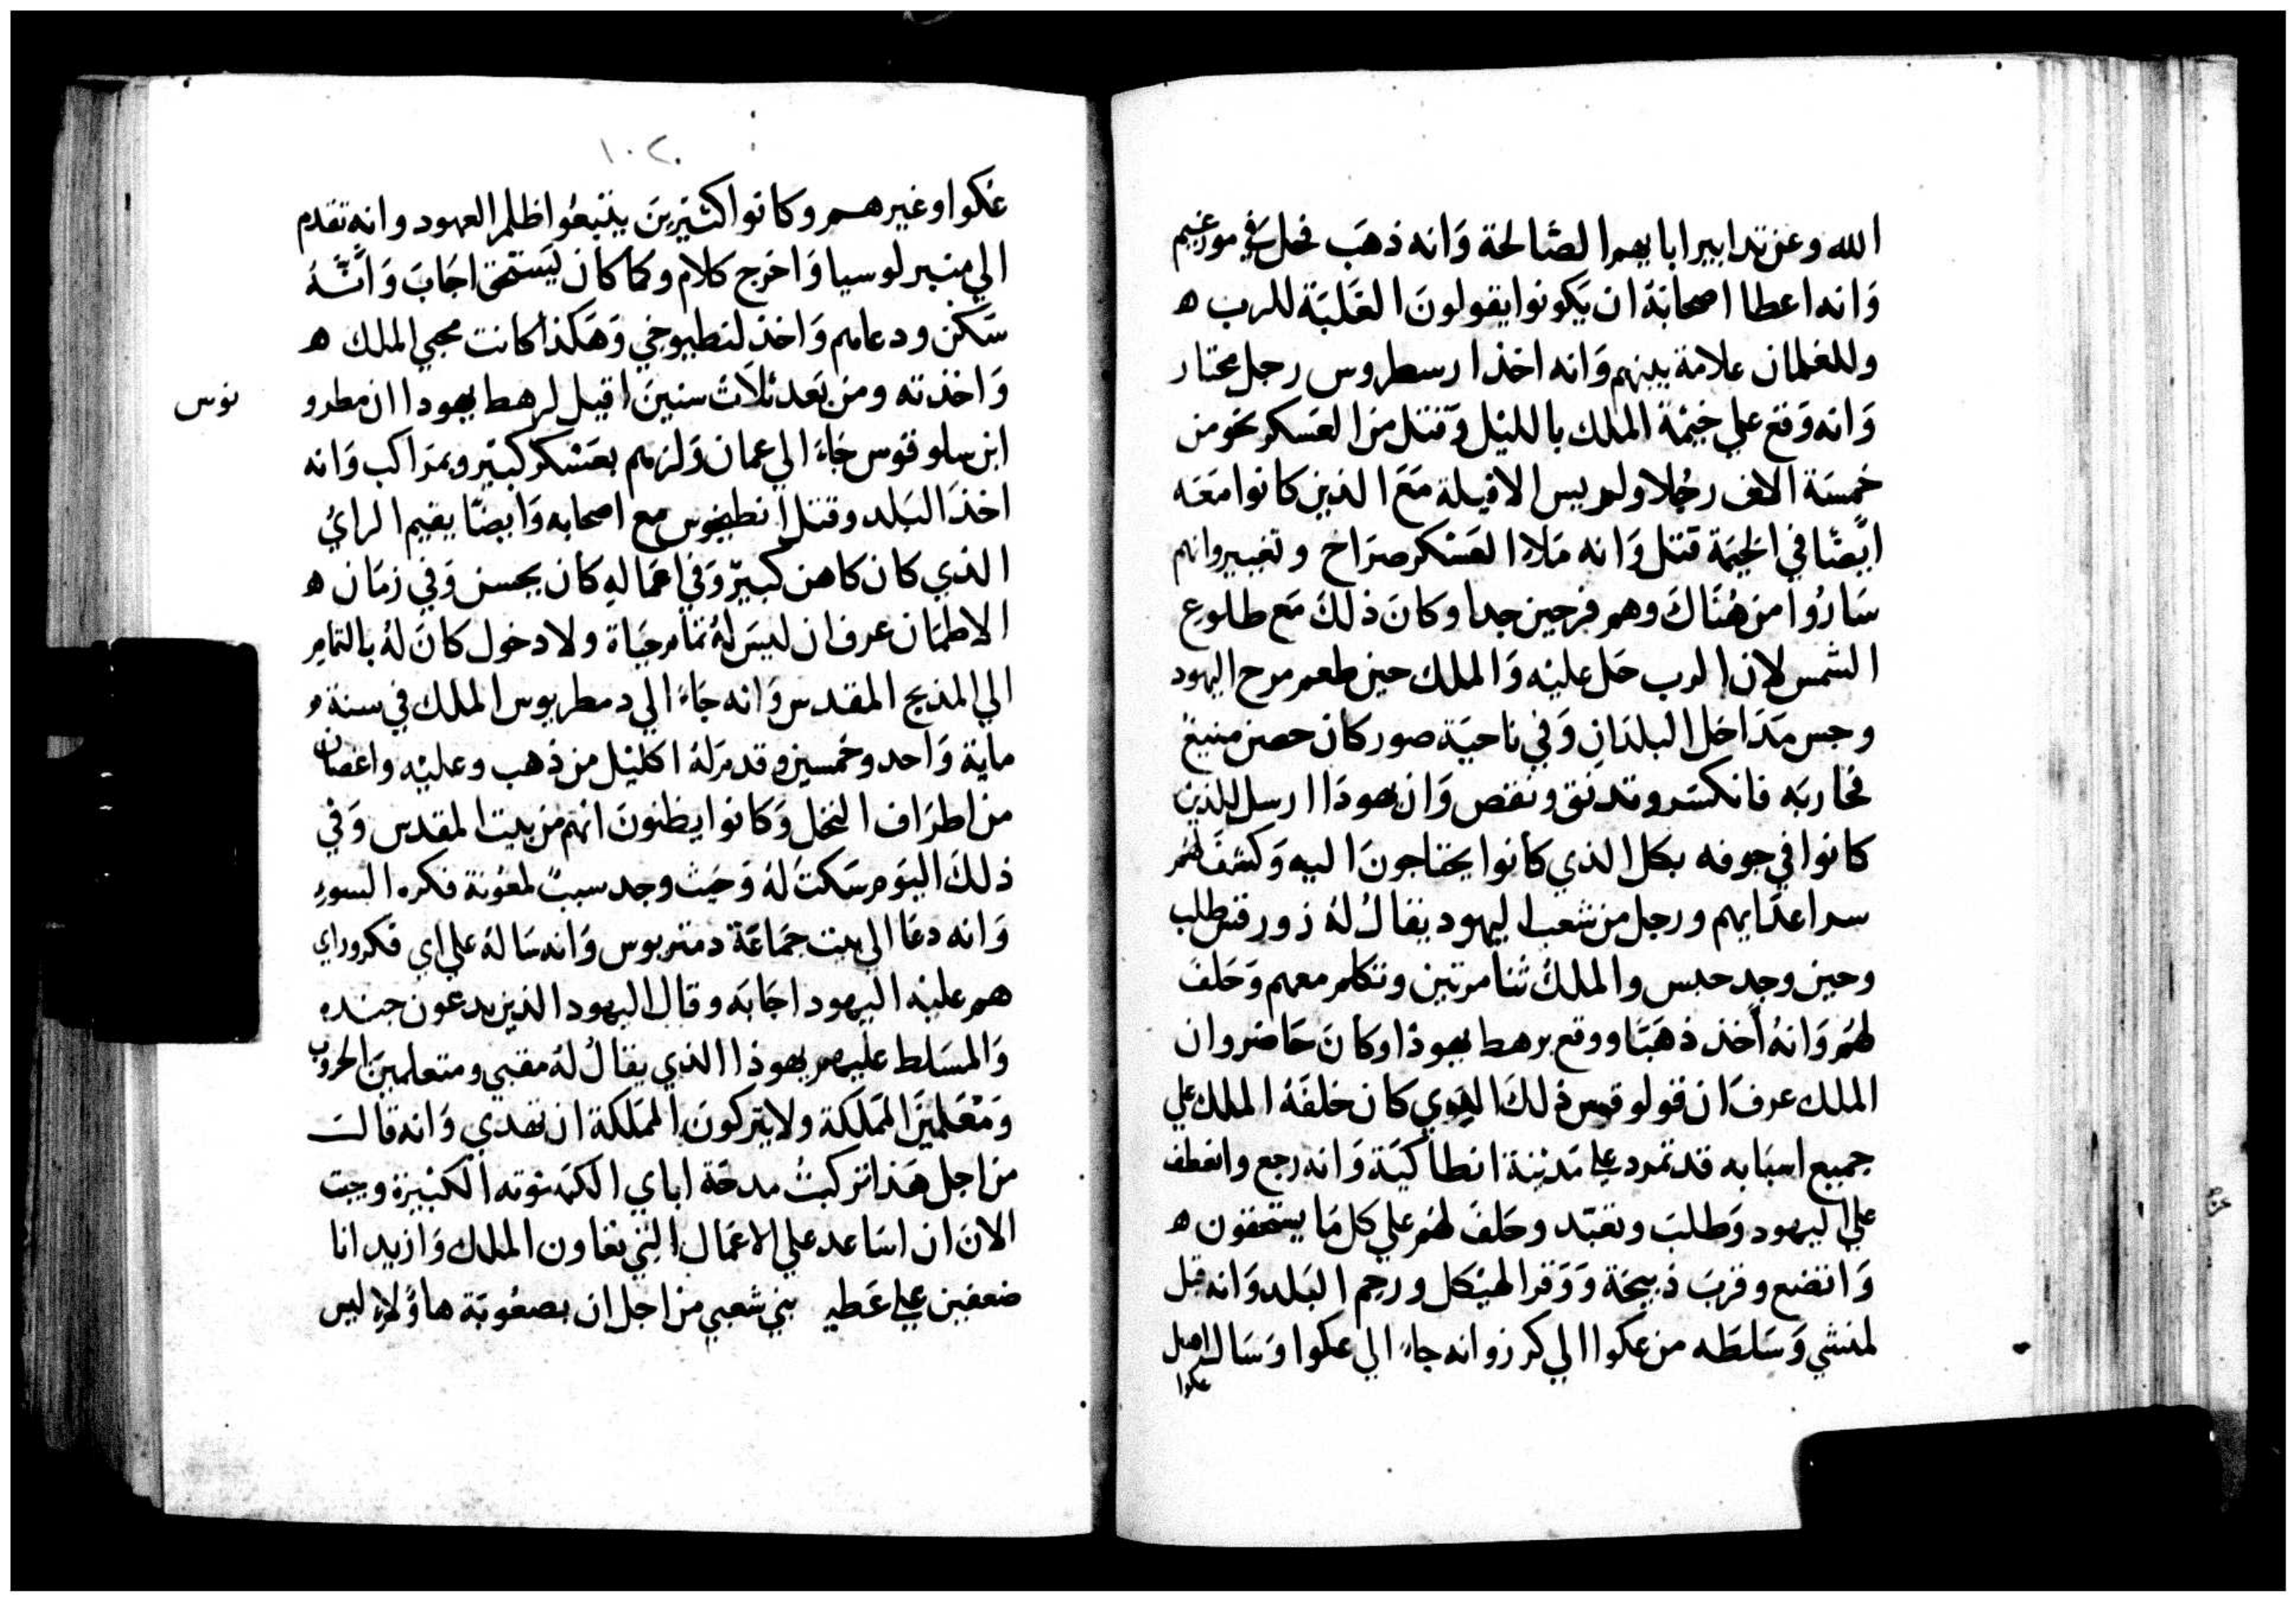 الله وعن تدابير ابايهم الصَالحة وَانه ذهَب فحل في مودعيم
وَانه اعطا اصحابَهُ ان يَكونوا يقولونَ الغَلبَة للرب ه
وللغلمان علامة بينهم وَانه اخذ ارسطروس رجل مختار
وَانه وَقع علي خيْمة الملك بالليْل وَقتل من العَسكر نحو من
خمسَة الاف رجُلا ولم ييس الافيلة مَعَ الذين كانوا معَه
ايْضًا في الخيمَة قتل وَانه مَلاء العَسْكر صرَاخ وتغيير وانهم
سَارُوا من هُنَاكَ وهم فرحين جدا وكانَ ذلكَ مَع طلوع
الشمس لان الرب حَل عليْه وَالملك حين طعم مرح اليهود
وجس مَدَاخل البلدَان وَفي ناحيَة صور كان حصن منيع
فحاربَه فانكسَر وقد نق ونقص وَان يهودَا ارسل للذين
كانوا في جوفه بكل الذي كانوا يحتاجونَ اليه وَكشفَ لهُم
سر اعدَايهم ورجل من شعب اليهود يقالُ لهُ زور قتطلب
وحين وجد حبس والملك ثنا مرتين وتكلم معهم وَحَلفَ
لهُم وَانهُ أخذ ذهَبًا ووقع برهط يهوذا وكانَ حَاضر وان
الملك عرفَ ان فولوقوس ذلكَ الذي كان خلفَهُ الملك علي
جميع اسبَابه قد تمرد علي مَديْنة انطاكيَة وَانه رجع وانعطف
علي اليهود وَطلبَ وتعبّد وحَلفَ لهُم علي كل مَا يستحقون ه
وَاتضع وقربَ ذبيحَة وَوَقر الهيْكل ورحم البَلد وَانه قبل
لمنشي وَسَلطَه من عكوا الي كرز وانه جاء الي عكوا وَسَالـه اهل
عكوا
١٠٢
عكوا وغيرهم وكانوا كثيْرينَ يتبعُوا ظلم العهود وانه تقدم
الي منبر لوسيا وَاخرج كلام وكما كان يَستحق اجَابَ وَانَّهُ
سَكن ودعاهم وَاخذ لنطيوخي وَهَكذا كانت مجي الملك ه
وَاخذته ومن بَعد ثلاَثْ سنينَ قيل لرهط يهودا ان مطرو
نوس
ابن سلوقوس جَاءَ الي عمان وَلزمهم بعَسْكر كبيْر وبمرَاكب وَانه
اخذَ البَلد وقتل انطيخوس مع اصحابه وَايضًا يقيم الرايْ
الذي كان كاهن كبيْر وَفي اعمَاله كان يحسن وَفي زمَان ه
الاطمَان عرف ان ليسَ لهُ تمَام حَيَاة ولا دخول كانَ لهُ بالتمام
الي المذبح المقدس وَانه جَاءَ الي دمطريوس الملك في سنة
ماية وَاحد وخمسين وقدم لهُ اكليْل من ذهب وعليْه واغصان
من اطرَاف النخل وَكانوا يظنونَ انهم من بيت المقدس وَفي
ذلكَ اليَوم سَكتَ لهُ وَحَيث وجد سببً لمعُونة فكره السور
وَانه دعَا الي بيت جمَاعَة دمتريوس وَانه سَالهُ علي اي فكر وراي
هم عليْه اليهود اجَابَه وقال اليهود الذين يدعون جنده
وَالمسَلط عليهم يهوذا الذي يقالُ لهُ مقبي ومتعلمينَ الحروب
وَمُعَلمينَ المَلكة ولا يتركونَ المَلكة ان تهدي وَانه قالت
من اجل هَذا تركبتُ مدحَة اباي الكَهنوته الكبيْرة وجيت
الان ان اسَاعد علي الاعمَال التي تعاون الملك وَازيد انا
ضعفين علي عَطيه بني شعبي من اجل ان بصعُوبَة هاوُلاء ليس